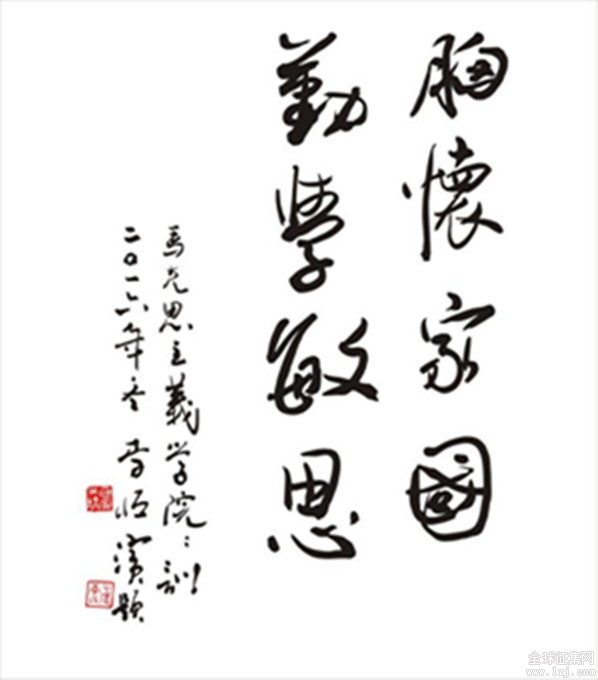 胸懷家國
勤學敏思
馬克思主義学院院訓
二〇一六年冬 李恒濱题
全球征集网
www.1zj.com